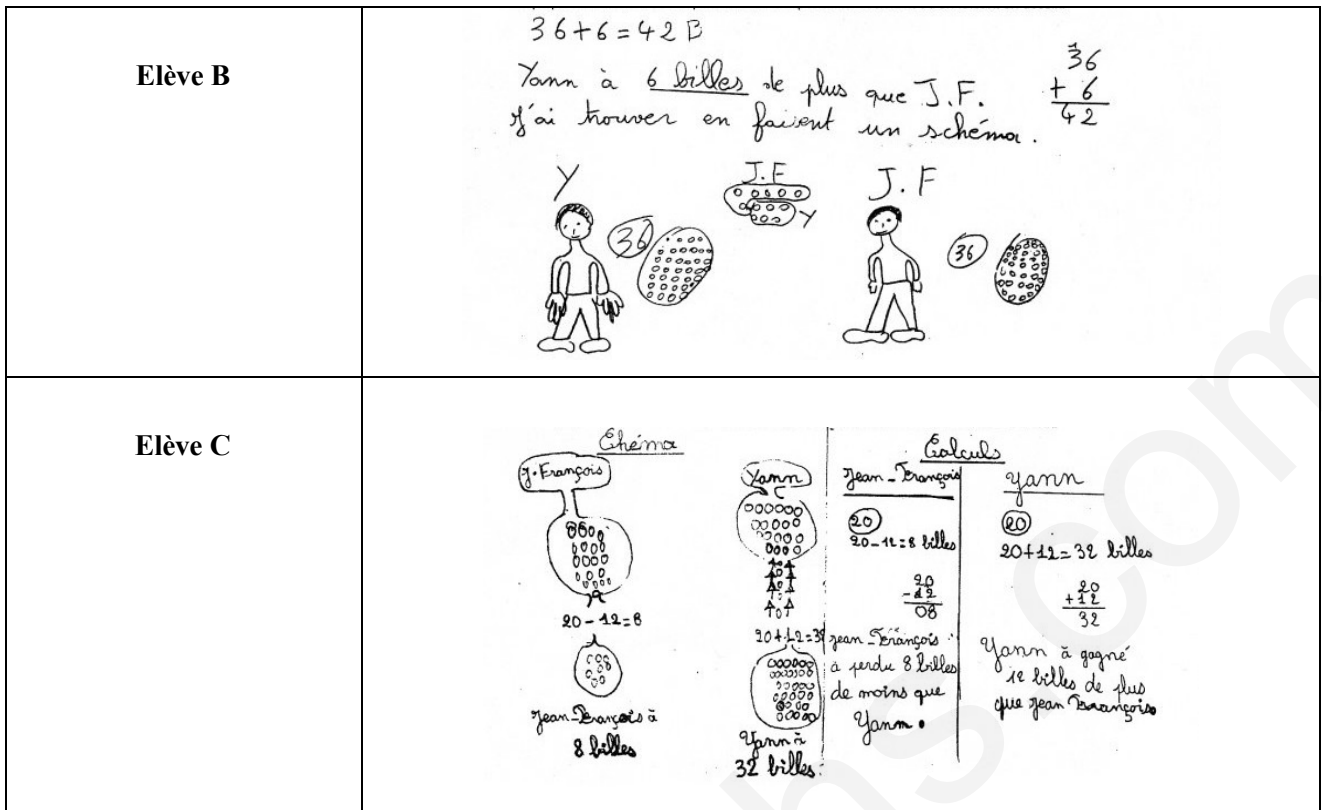 Elève B
36+6=42 B
Yann à 6 billes de plus que J.F.
J'ai trouver en faisent un schéma.
36
+ 6
42
Y
J.F
Y
J.F
36
36
Elève C
Chéma
J.François
20-12=8
Jean-François à
8 billes
Yann
20+12=32
Yann à
32 billes.
Calculs
Jean-François
20
20-12=8 billes
20
-12
08
Jean-François
à perdu 8 billes
de moins que
Yann.
Yann
20
20+12=32 billes
20
+12
32
Yann à gagné
12 billes de plus
que Jean François